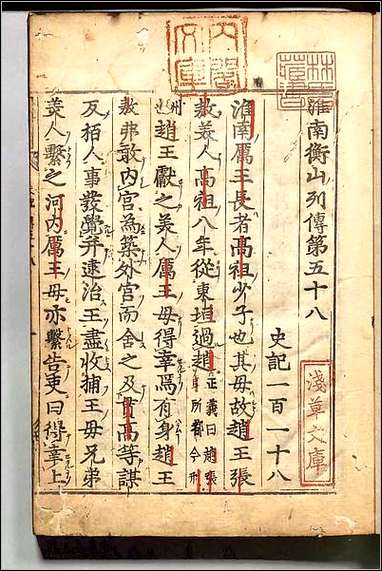 淮南衡山列傳第五十八
史記一百一十八
淮南厲王長者髙祖少子也其母故趙王張
敖美人高祖八年從東垣過趙正義曰趙張敖所都今邢州也
趙王獻之美人厲王母得幸焉有身趙王
敖弗敢内宫為築外宫而舍之及貫高等謀
反栢人事發覺并逮治王盡收捕王母兄弟
美人繫之河内厲王母亦繫告吏曰得幸上
淺草文庫
内閣文庫
林氏藏書